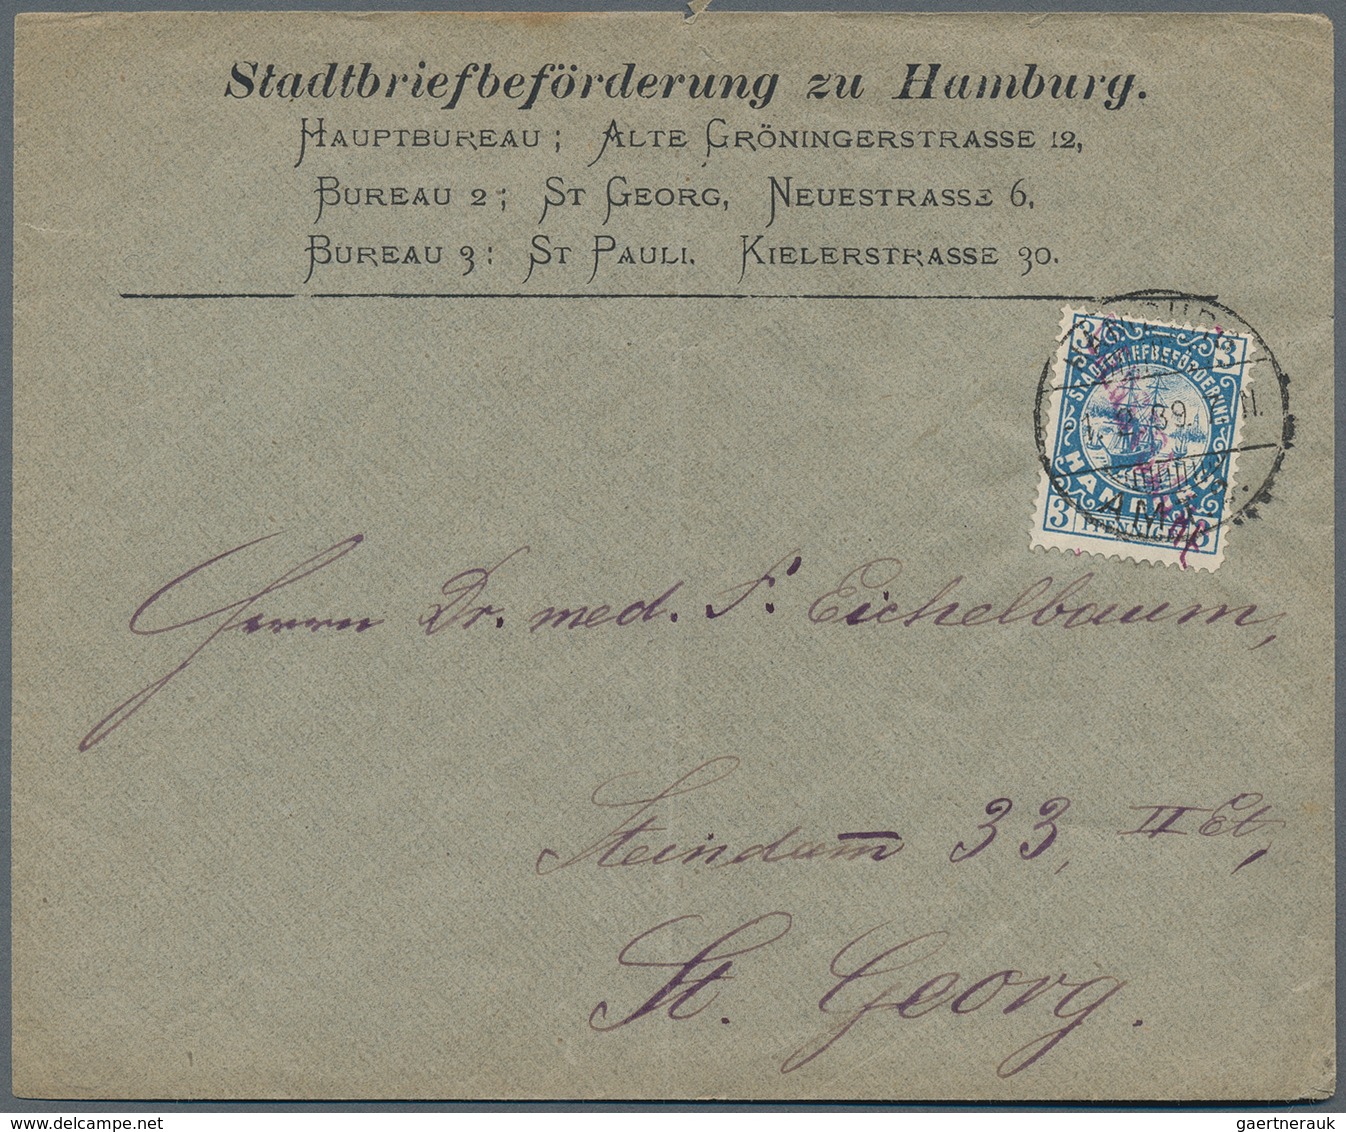 Stadtbriefbeförderung zu Hamburg.
HAUPTBUREAU; ALTE GRÖNINGERSTRASSE 12,
BUREAU 2; ST GEORG, NEUESTRASSE 6,
BUREAU 3: ST PAULI. KIELERSTRASSE 30.
3 3
STADTBRIEFBEFÖRDERUNG
HAMBURG
3 PFENNIGE 3
Herrn Dr. med. S. Eichelbaum,
Steindam̅ 33, II Et,
St. Georg.
delcampe.net
gaertnerauk